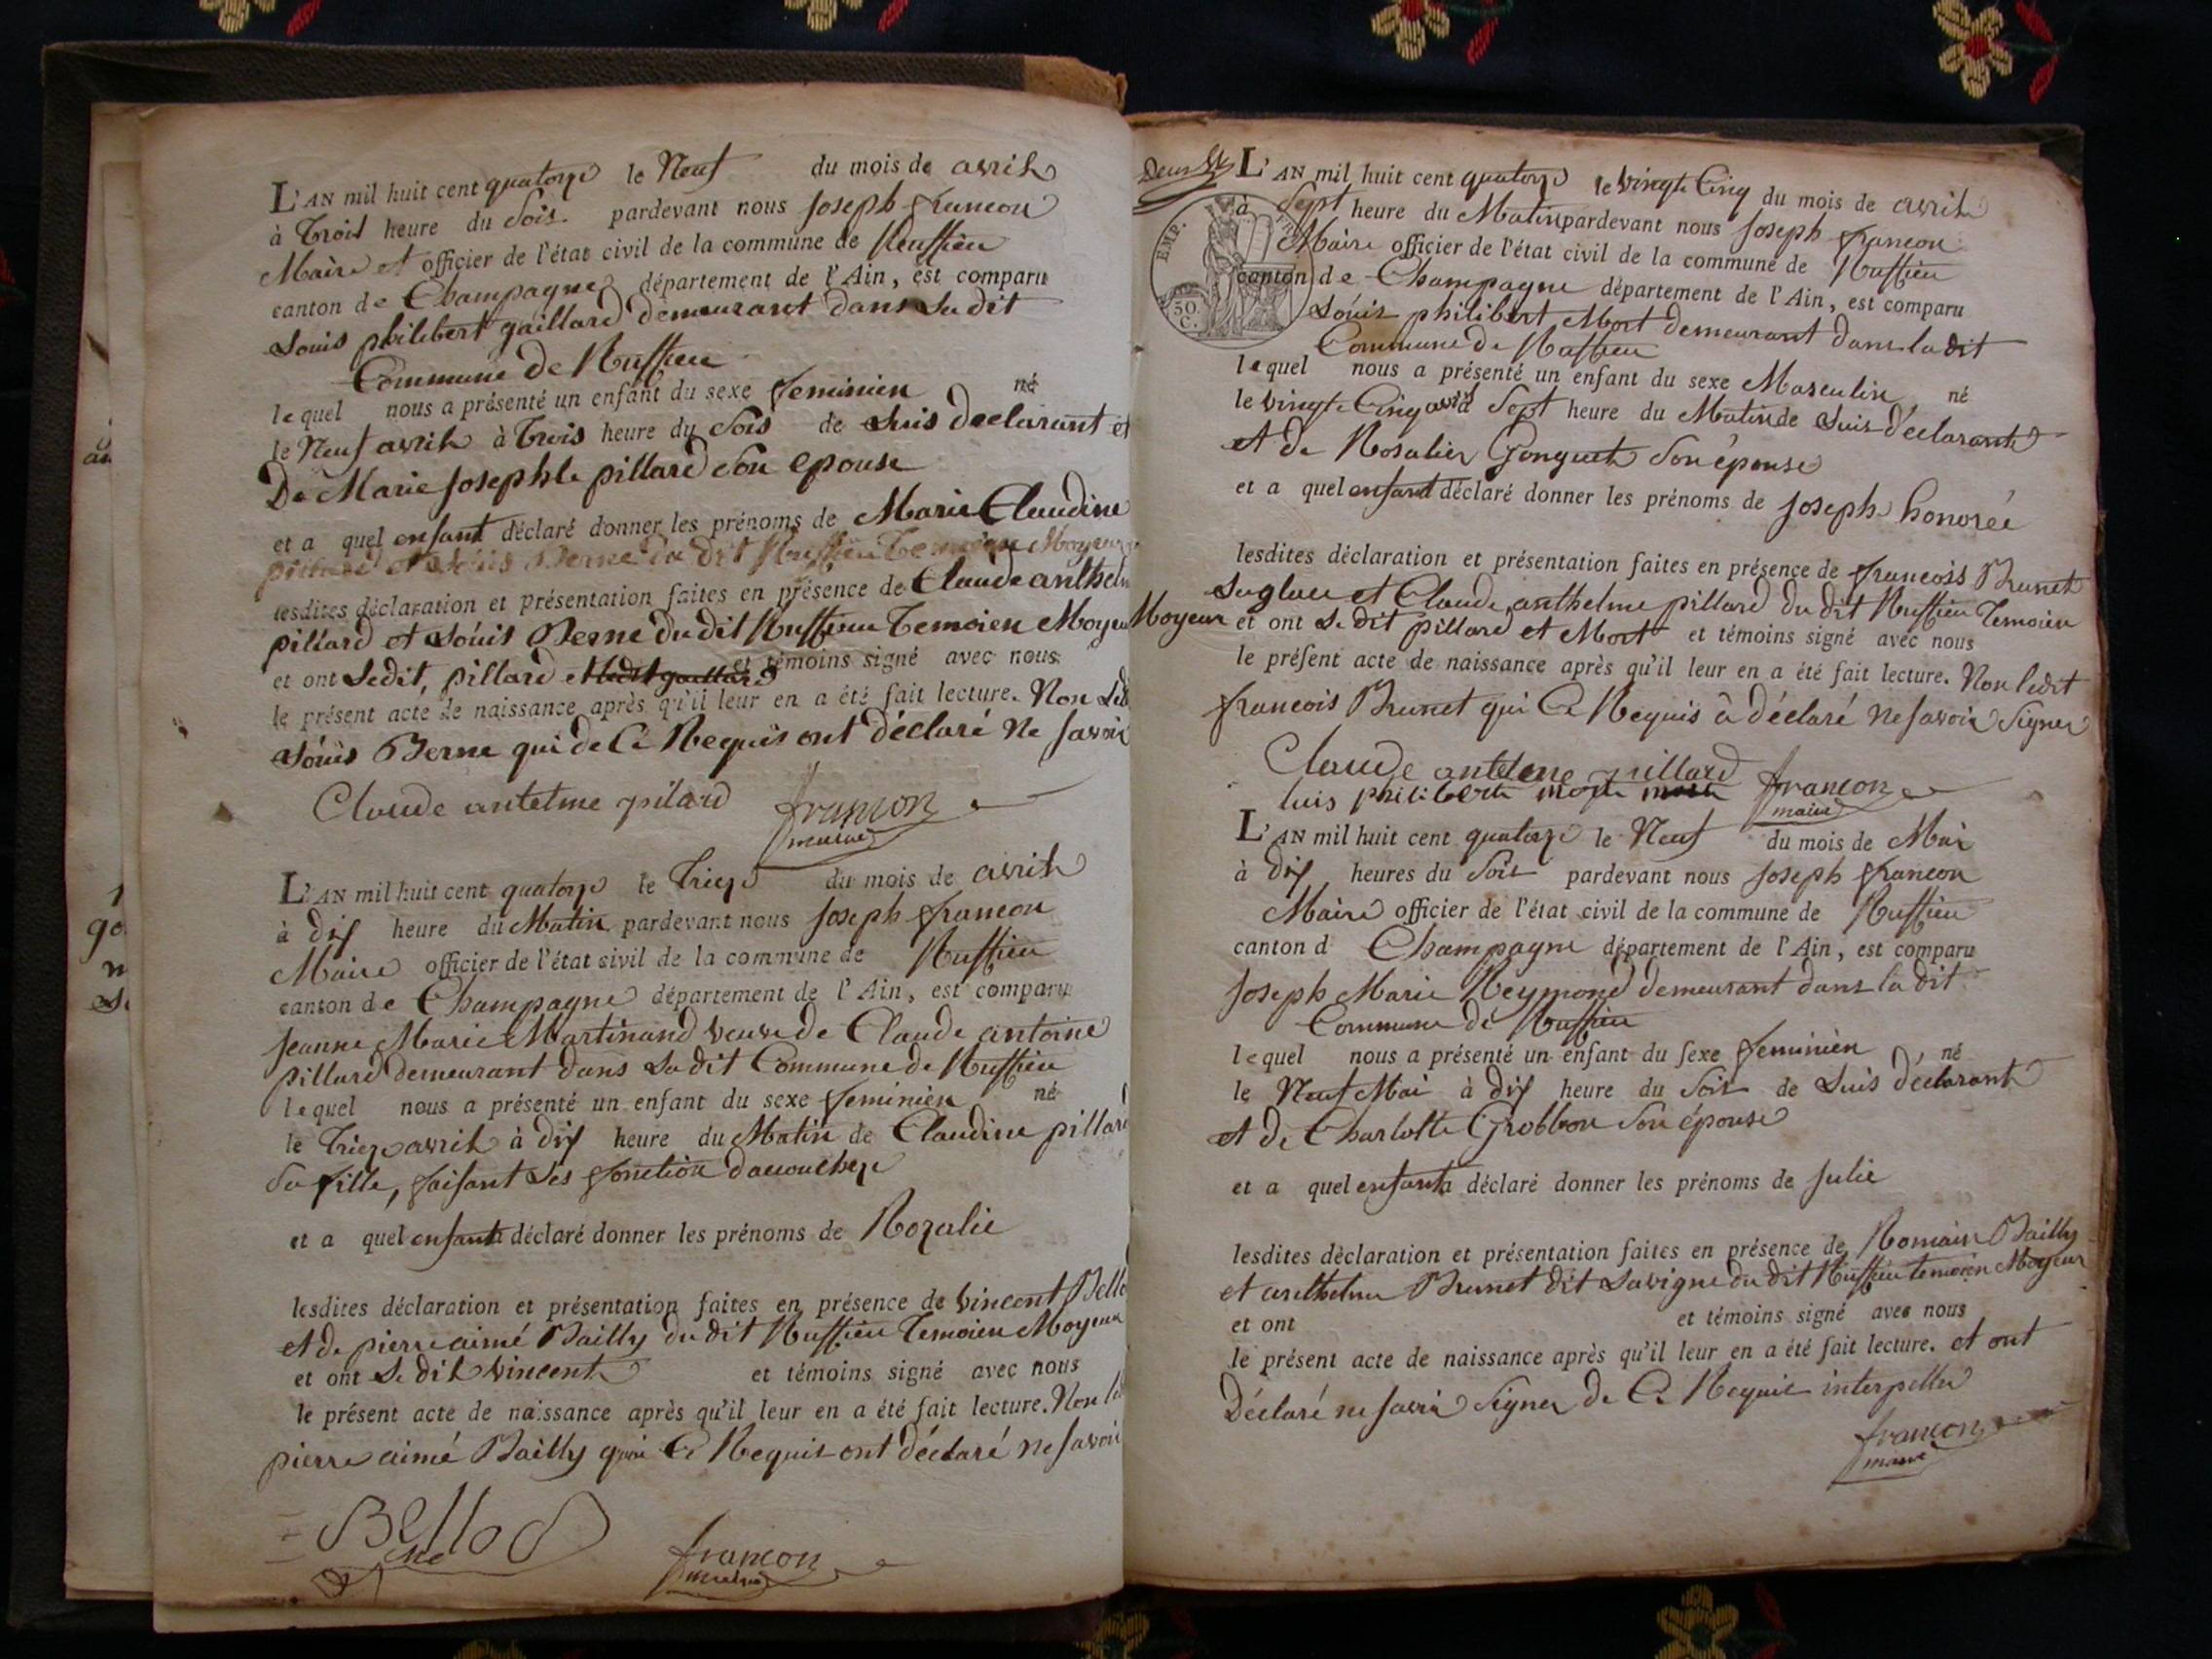 L'AN mil huit cent quatorze le Neuf du mois de avril
à Trois heure du Soir pardevant nous Joseph francon
Maire et officier de l'état civil de la commune de Ruffieu
canton de Champagne département de l'Ain, est comparu
Louis philibert gaillard demeurant dans La dit
Commune de Ruffieu
lequel nous a présenté un enfant du sexe feminien né
le Neuf avril à Trois heure du Soir de Luis declarant et
De Marie Josephte pillard Son epouse
et a quel enfant déclaré donner les prénoms de Marie Claudine
pillard et Louis Berne du dit Ruffieu Temoien Moyeur
lesdites déclaration et présentation faites en présence de Claude anthelm
pillard et Louis Berne du dit Ruffieu Temoien Moyeu
et ont Ledit, pillard et témoins signé avec nous
le présent acte de naissance après qu'il leur en a été fait lecture. Non Led
Louis Berne qui de Ce Requis ont déclaré Ne savoir
Claude antelme pilard francon
maire
L'AN mil huit cent quatorze le Trieze du mois de avril
à dix heure du Matin pardevant nous Joseph francon
Maire officier de l'état civil de la commune de Ruffieu
canton de Champagne département de l'Ain, est comparu
Jeanne Marie Martinand veuve de Claude antoine
pillard demeurant dans La dit Commune de Ruffieu
lequel nous a présenté un enfant du sexe feminien né
le Trieze avril à dix heure du Matin de Claudine pillard
Sa fille, faisant Les fonction daccoucheze
et a quel enfant déclaré donner les prénoms de Rozalie
lesdites déclaration et présentation faites en présence de vincent Bello
et de pierre aimé Bailly du dit Ruffieu Temoien Moyeur
et ont Le dit vincent et témoins signé avec nous
le présent acte de naissance après qu'il leur en a été fait lecture. Non le
pierre aimé Bailly qui Ce Requis ont déclaré ne savoir
Bello
francon
maire
L'AN mil huit cent quatorze le vingt Cinq du mois de avril
à Sept heure du Matin pardevant nous Joseph francon
Maire officier de l'état civil de la commune de Ruffieu
canton de Champagne département de l'Ain, est comparu
Louis philibert Mort demeurant dans la dit
Commune de Ruffieu
lequel nous a présenté un enfant du sexe Masculin né
le vingt Cinq avril Sept heure du Matin de Luis déclarant
et de Rosalier Gonguet Son épouse
et a quel enfant déclaré donner les prénoms de Joseph honorée
lesdites déclaration et présentation faites en présence de francois Brunet
et Claude anthelme pillard du dit Ruffieu Temoien
Moyeur et ont Le dit pillard et Mort et témoins signé avec nous
le présent acte de naissance après qu'il leur en a été fait lecture. Non ledit
francois Brunet qui Ce Requis à déclaré ne savoir Signer
Claude antelme pillard
luis philiberte francon
maire
EMP.
50
C.
L'AN mil huit cent quatorze le Neuf du mois de Mai
à dix heures du Soir pardevant nous Joseph francon
Maire officier de l'état civil de la commune de Ruffieu
canton d Champagne département de l'Ain, est comparu
Joseph Marie Reymond demeurant dans la dit
Commune de Ruffieu
lequel nous a présenté un enfant du sexe feminien né
le Neuf Mai à dix heure du Soir de Luis déclarant
et de Charlotte Grobbon Son épouse
et a quel enfant a déclaré donner les prénoms de Julie
lesdites déclaration et présentation faites en présence de Romain Bailly
et anthelme Brunet dit Lavigne du dit Ruffieu temoien Moyeur
et ont et témoins signé avec nous
le présent acte de naissance après qu'il leur en a été fait lecture. et ont
Déclaré ne savoir Signer de Ce Requis interpeller
francon
maire